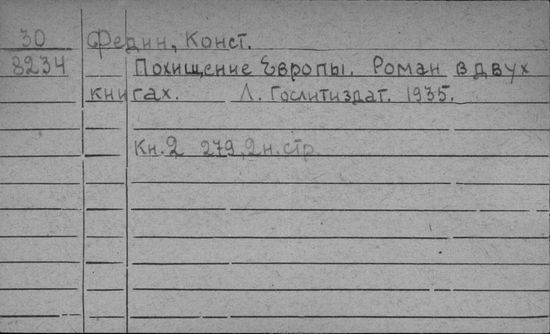 30 Федин, Конст.
8234 Похищение Европы. Роман в двух
книгах. Л. Гослитиздат. 1935.
Кн. 2 279, 2 н. стр.